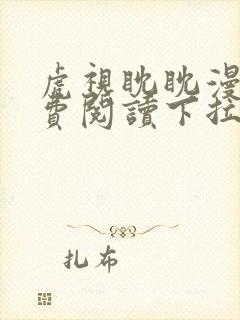 虎視眈眈漫
費閱讀下拉
扎布